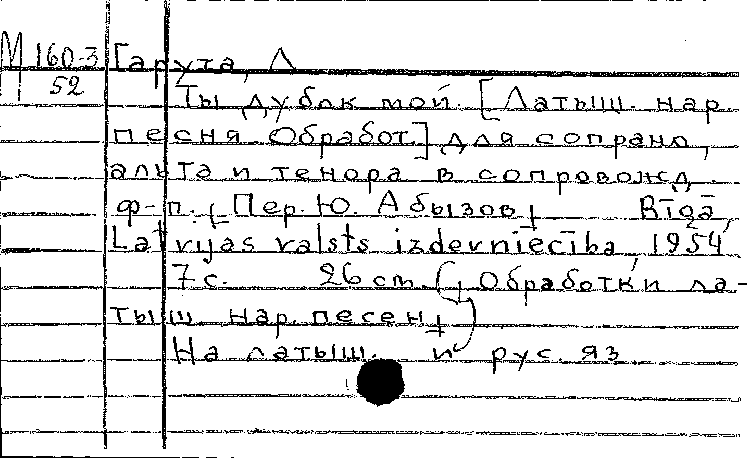 М 160-3 Гарута, Л
52
Ты дубок мой. [Латыш. нар.
песня. Обработ.] для сопрано,
альта и тенора в сопровожд.
ф-п. + Пер. Ю. Абызов + Rīgā,
Latvijas valsts izdevniecība, 1954
7 с. 26 cm. (+ Обработки ла-
тыш. нар. песен +
На латыш. и рус. яз.